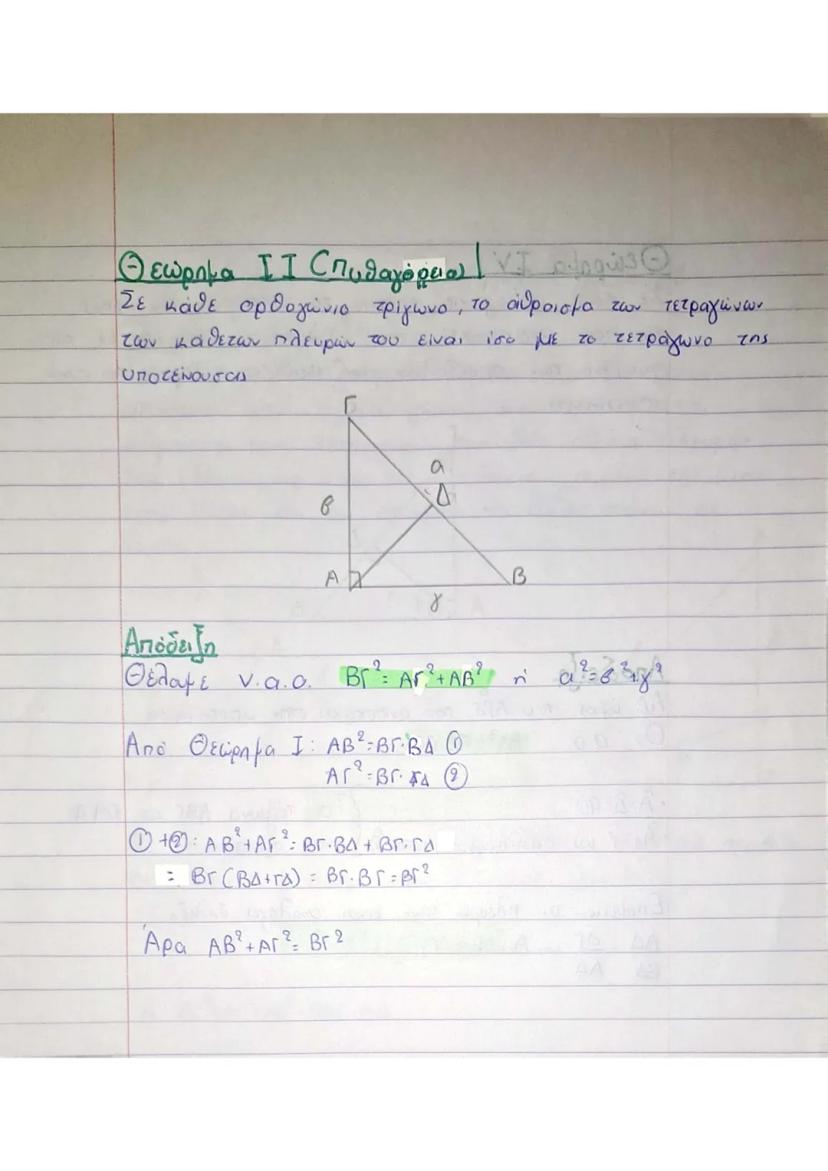 Θεώρημα ΙΙ (Πυθαγόρεια)
Σε κάθε ορθογώνιο τρίγωνο, το άθροισμα των τετραγώνων
των κάθετων πλευρών του είναι ίσο με το τετράγωνο της
υποτείνουσας
Γ
α
Δ
β
Α
Β
γ
Απόδειξη
Θέλαμε ν.α.ο. ΒΓ²= ΑΓ²+ΑΒ² ή α²=β²+γ²
Από Θεώρημα Ι: ΑΒ²=ΒΓ·ΒΔ ①
ΑΓ²=ΒΓ·ΓΔ ②
①+②: ΑΒ²+ΑΓ²=ΒΓ·ΒΔ+ΒΓ·ΓΔ
= ΒΓ(ΒΔ+ΓΔ) = ΒΓ·ΒΓ=ΒΓ²
Άρα ΑΒ²+ΑΓ²= ΒΓ²